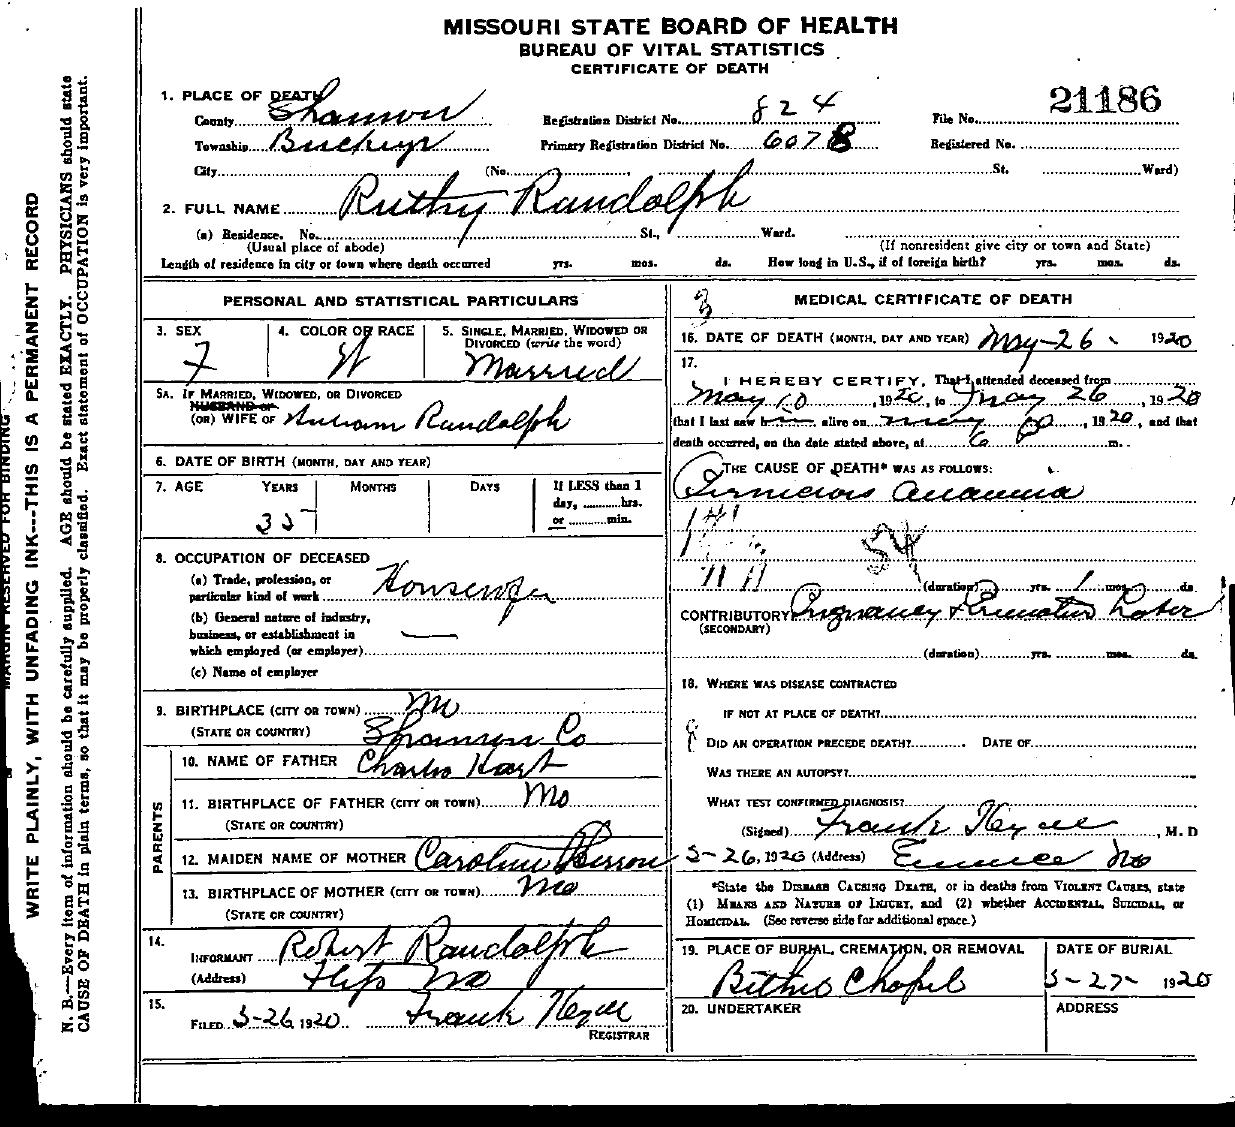 MISSOURI STATE BOARD OF HEALTH
BUREAU OF VITAL STATISTICS
CERTIFICATE OF DEATH
21186
1. PLACE OF DEATH
County Shannon Registration District No. 824 File No.
Township Primary Registration District No. 6078 Registered No.
City (No. , St. Ward)
2. FULL NAME Ruthy Randolph
(a) Residence. No. St., Ward.
(Usual place of abode) (If nonresident give city or town and State)
Length of residence in city or town where death occurred yrs. mos. ds. How long in U.S., if of foreign birth? yrs. mos. ds.
PERSONAL AND STATISTICAL PARTICULARS
3. SEX
F
4. COLOR OR RACE
W
5. SINGLE, MARRIED, WIDOWED OR
DIVORCED (write the word)
Married
5A. IF MARRIED, WIDOWED, OR DIVORCED
HUSBAND or
(OR) WIFE OF Randolph
6. DATE OF BIRTH (MONTH, DAY AND YEAR)
7. AGE YEARS MONTHS DAYS If LESS than 1
day, hrs.
or min.
35
8. OCCUPATION OF DECEASED
(a) Trade, profession, or
particular kind of work Housewife
(b) General nature of industry,
business, or establishment in
which employed (or employer)
(c) Name of employer
9. BIRTHPLACE (CITY OR TOWN) Mo
(STATE OR COUNTRY) Shannon Co
PARENTS
10. NAME OF FATHER Charles Hart
11. BIRTHPLACE OF FATHER (CITY OR TOWN) Mo
(STATE OR COUNTRY)
12. MAIDEN NAME OF MOTHER Caroline
13. BIRTHPLACE OF MOTHER (CITY OR TOWN) Mo
(STATE OR COUNTRY)
14.
INFORMANT Robert Randolph
(Address) Mo
15.
FILED 5-26, 1920 Frank Hyde
REGISTRAR
MEDICAL CERTIFICATE OF DEATH
16. DATE OF DEATH (MONTH, DAY AND YEAR) May-26 1920
17.
I HEREBY CERTIFY, That I attended deceased from
May 10, 1920, to May 26, 1920
that I last saw h alive on May , 1920, and that
death occurred, on the date stated above, at 6 P m.
THE CAUSE OF DEATH* WAS AS FOLLOWS:
Pernicious Anaemia
54
(duration) yrs. 1 mos. ds.
CONTRIBUTORY Pregnancy & Premature Labor
(SECONDARY)
(duration) yrs. mos. ds.
18. WHERE WAS DISEASE CONTRACTED
IF NOT AT PLACE OF DEATH?
DID AN OPERATION PRECEDE DEATH? DATE OF
WAS THERE AN AUTOPSY?
WHAT TEST CONFIRMED DIAGNOSIS?
(Signed) Frank Hyde, M. D
5-26, 1920 (Address) Eminence Mo
*State the DISEASE CAUSING DEATH, or in deaths from VIOLENT CAUSES, state
(1) MEANS AND NATURE OF INJURY, and (2) whether ACCIDENTAL, SUICIDAL, or
HOMICIDAL. (See reverse side for additional space.)
19. PLACE OF BURIAL, CREMATION, OR REMOVAL
Chapel
DATE OF BURIAL
5-27- 1920
20. UNDERTAKER
ADDRESS
MARGIN RESERVED FOR BINDING
WRITE PLAINLY, WITH UNFADING INK---THIS IS A PERMANENT RECORD
N. B.—Every item of information should be carefully supplied. AGE should be stated EXACTLY. PHYSICIANS should state
CAUSE OF DEATH in plain terms, so that it may be properly classified. Exact statement of OCCUPATION is very important.